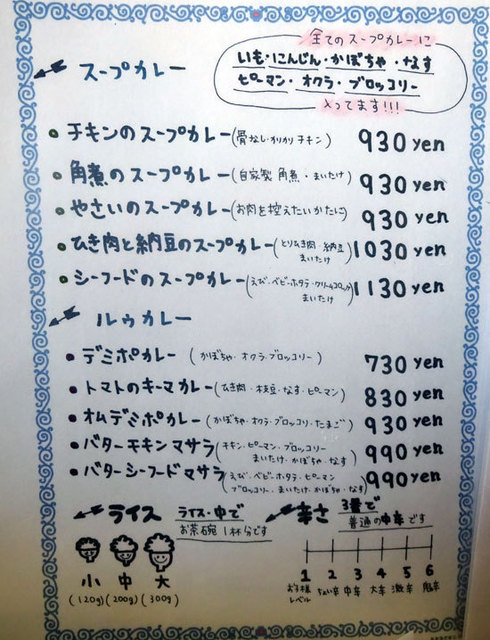 スープカレー
全てのスープカレーに
いも・にんじん・かぼちゃ・なす
ピーマン・オクラ・ブロッコリー
入ってます!!!
チキンのスープカレー(骨なし・かりかりチキン) 930yen
角煮のスープカレー(自家製 角煮・まいたけ) 930yen
やさいのスープカレー(お肉を控えたいかたに) 930yen
ひき肉と納豆のスープカレー(とりひき肉・納豆 まいたけ) 1030yen
シーフードのスープカレー(えび・ベビーホタテ・クリームコロッケ まいたけ) 1130yen
ルゥカレー
デミポカレー (かぼちゃ・オクラ・ブロッコリー) 730yen
トマトのキーマカレー(ひき肉・枝豆・なす・ピーマン) 830yen
オムデミポカレー(かぼちゃ・オクラ・ブロッコリ・たまご) 930yen
バターチキンマサラ(チキン・ピーマン・ブロッコリー
まいたけ・かぼちゃ・なす) 990yen
バターシーフードマサラ(えび・ベビーホタテ・ピーマン
ブロッコリー・まいたけ・かぼちゃ・なす) 990yen
ライス ライス・中で
お茶碗1杯分です
小 中 大
(120g) (200g) (300g)
辛さ 3番で
普通の中辛です
1 2 3 4 5 6
お子様レベル ちょい辛 中辛 大辛 激辛 鬼辛